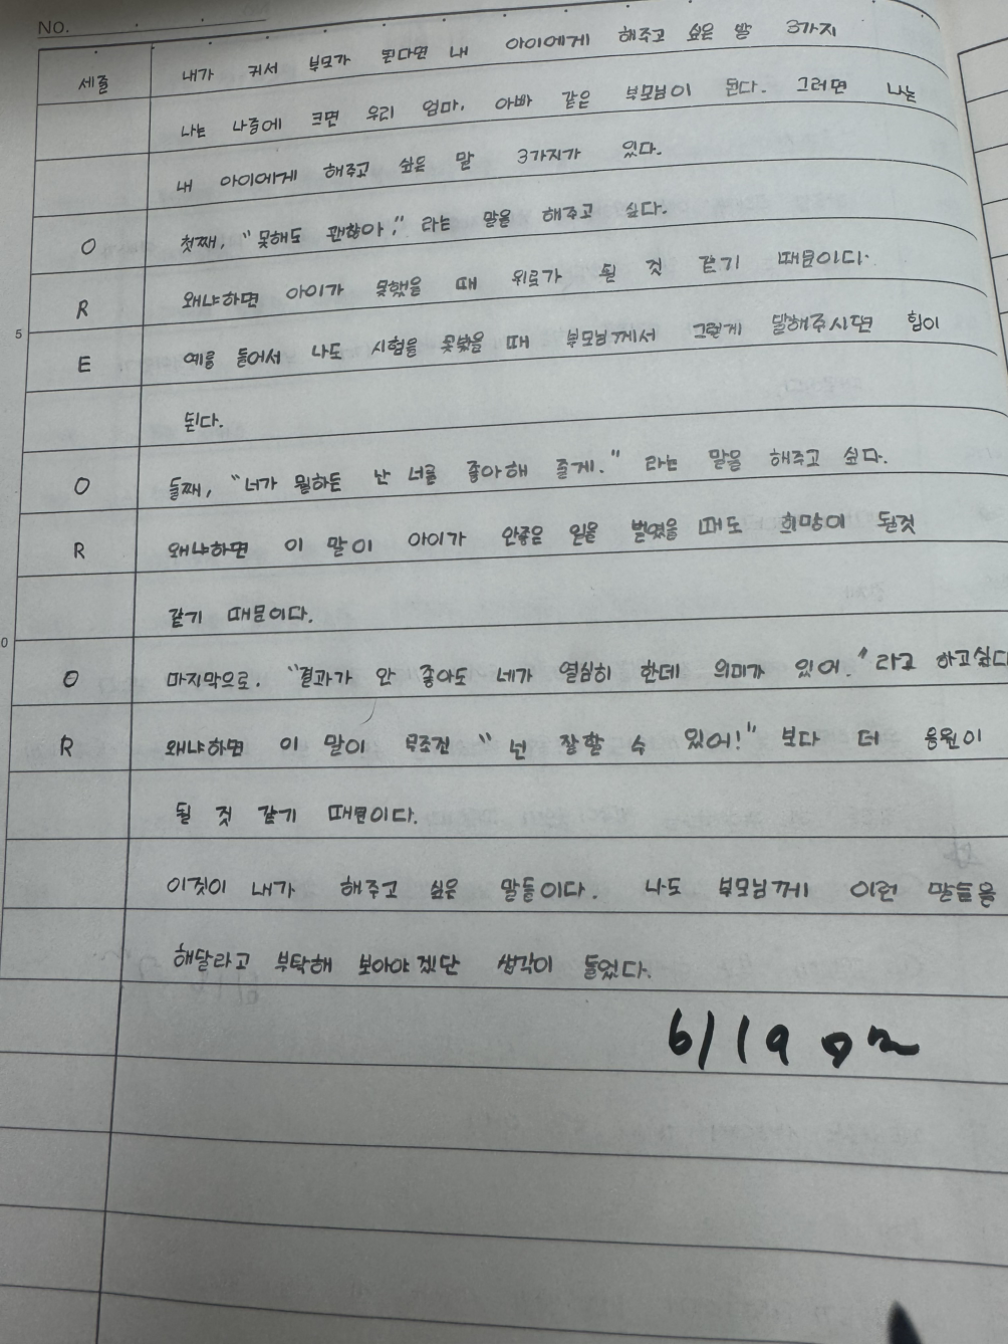 No.
세줄 내가 커서 부모가 된다면 내 아이에게 해주고 싶은 말 3가지
나는 나중에 크면 우리 엄마, 아빠 같은 부모님이 된다. 그러면 나는
내 아이에게 해주고 싶은 말 3가지가 있다.
O 첫째, "못해도 괜찮아." 라는 말을 해주고 싶다.
R 왜냐하면 아이가 못했을 때 위로가 될 것 같기 때문이다.
5
E 예를 들어서 나도 시험을 못봤을 때 부모님께서 그렇게 말해주시면 힘이
된다.
O 둘째, "너가 뭘하든 난 너를 좋아해 줄게." 라는 말을 해주고 싶다.
R 왜냐하면 이 말이 아이가 안좋은 일을 벌였을 때도 희망이 될것
같기 때문이다.
0
O 마지막으로, "결과가 안 좋아도 네가 열심히 한데 의미가 있어." 라고 하고싶다
R 왜냐하면 이 말이 무조건 "넌 잘할 수 있어!" 보다 더 응원이
될 것 같기 때문이다.
이것이 내가 해주고 싶은 말들이다. 나도 부모님께 이런 말들을
해달라고 부탁해 보아야겠단 생각이 들었다.
6/19